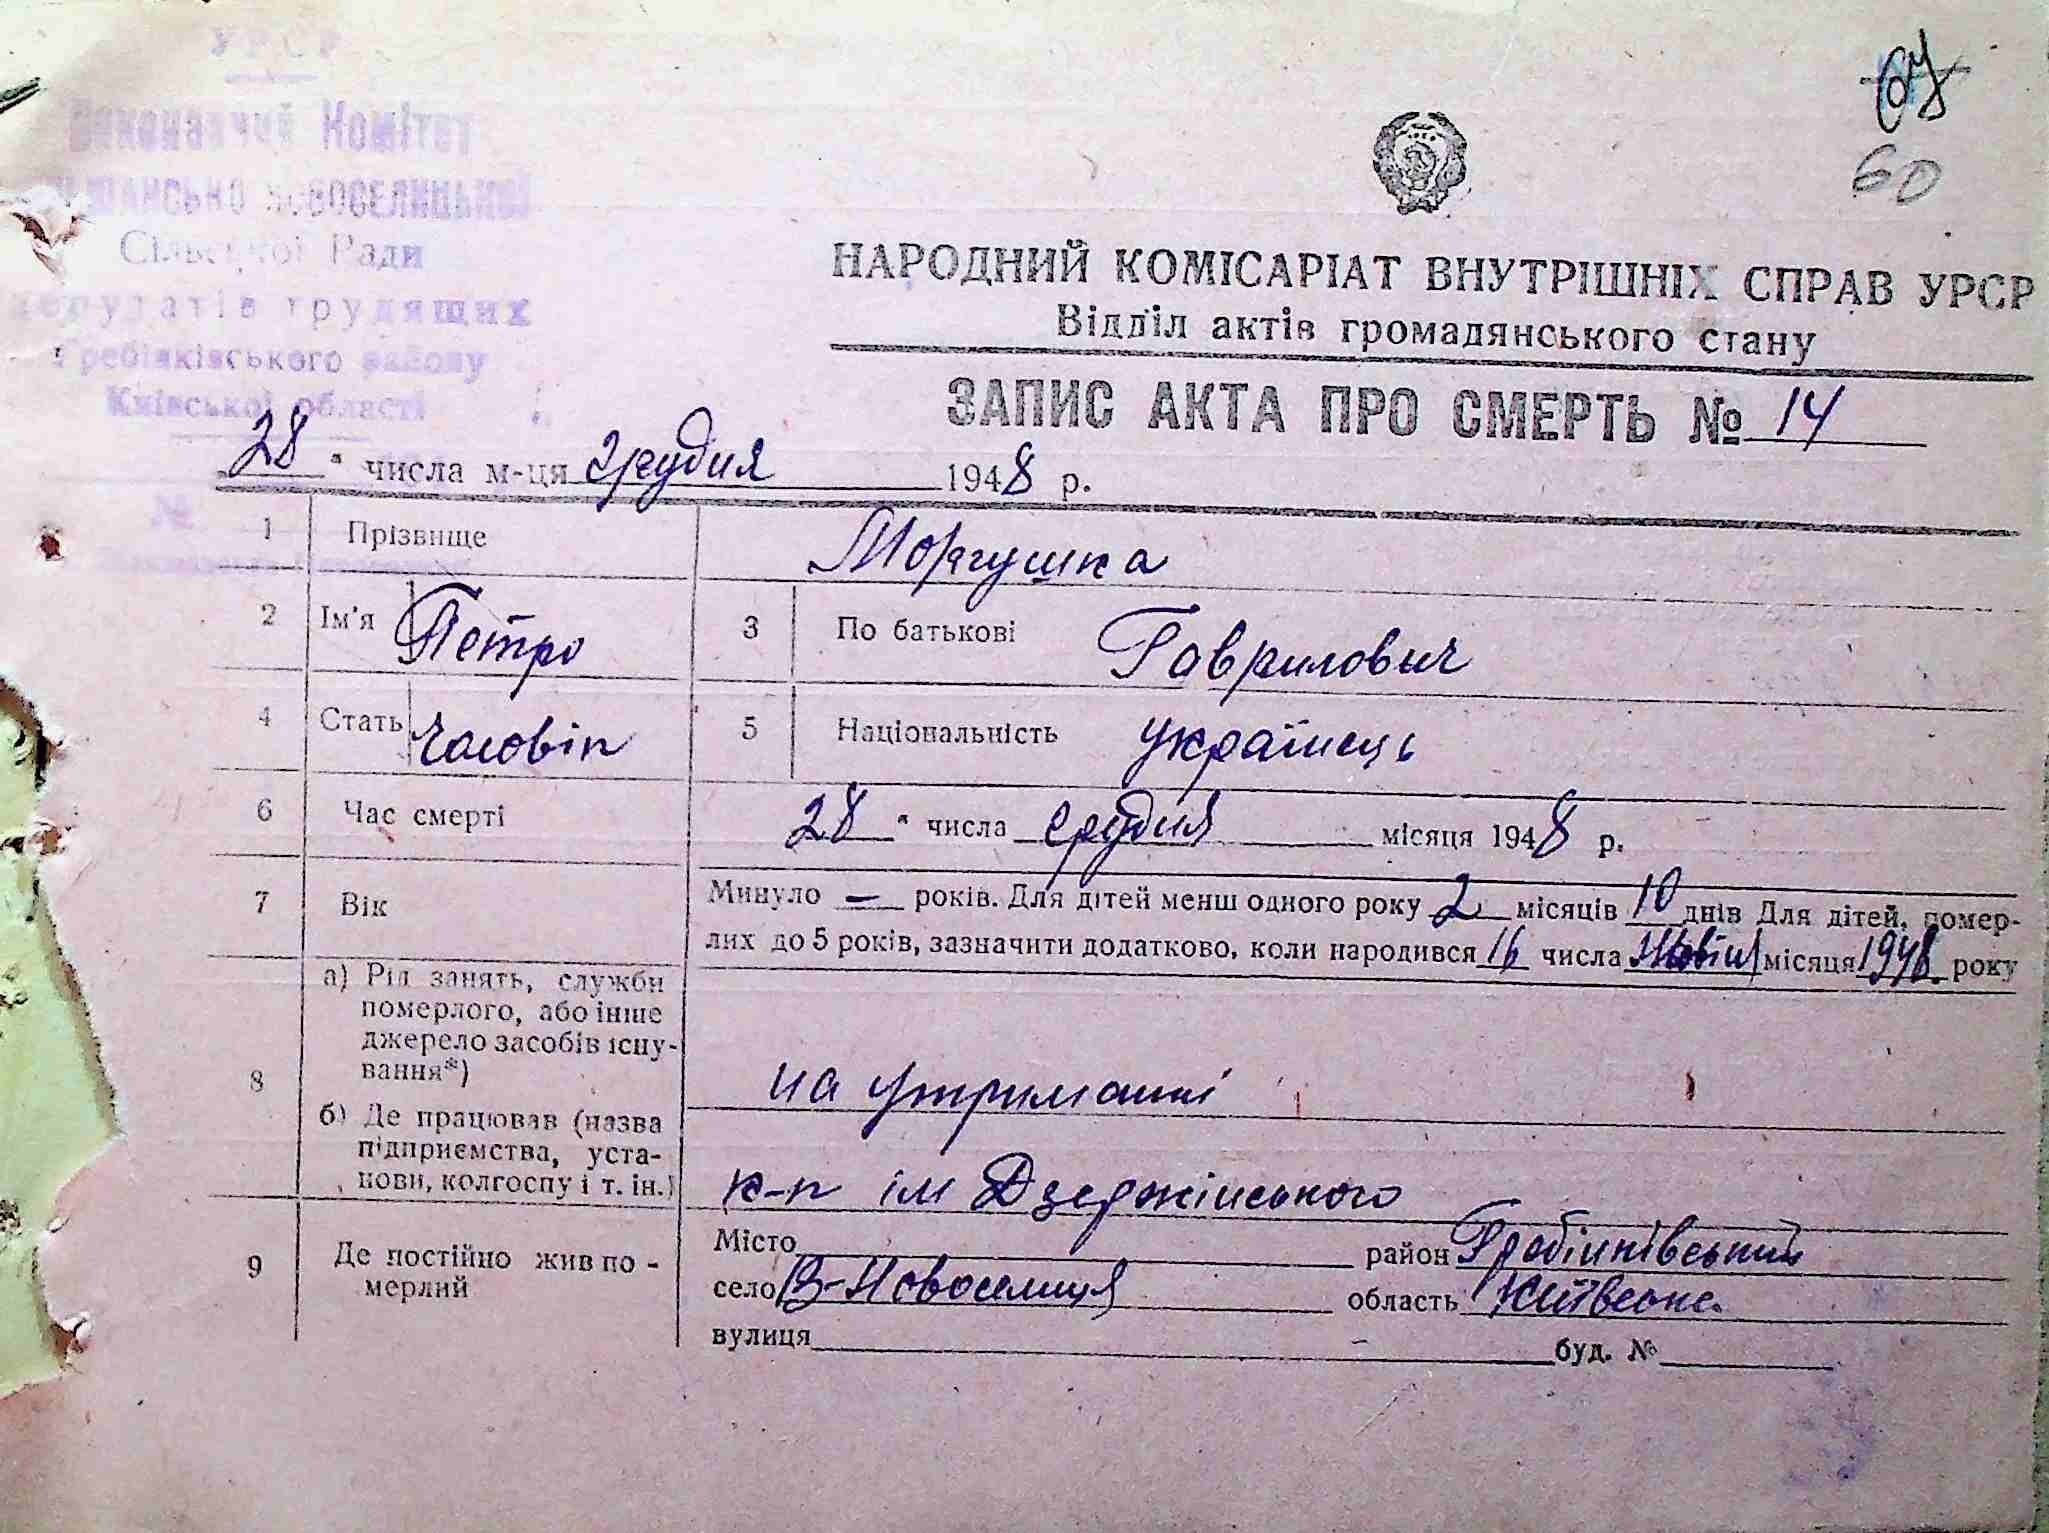 УРСР
Виконавчий Комітет
Сільської Ради
депутатів трудящих
Гребінківського району
Київської області
№
67
60
НАРОДНИЙ КОМІСАРІАТ ВНУТРІШНІХ СПРАВ УРСР
Відділ актів громадянського стану
ЗАПИС АКТА ПРО СМЕРТЬ № 14
28 " числа м-ця грудня 1948 р.
1 Прізвище Моргушка
2 Ім'я Петро 3 По батькові Гаврилович
4 Стать Чоловік 5 Національність українець
6 Час смерті 28 " числа грудня місяця 1948 р.
7 Вік Минуло — років. Для дітей менш одного року 2 місяців 10 днів Для дітей, помер-
лих до 5 років, зазначити додатково, коли народився 16 числа місяця 1948 року
8 а) Рід занять, служби
померлого, або інше
джерело засобів існу-
вання*) на утриманні
б) Де працював (назва
підприємства, уста-
нови, колгоспу і т. ін.) к-п ім Дзержінського
9 Де постійно жив по-
мерлий
Місто район Гребінківський
село В-Новоселиця область Київська
вулиця — буд. №